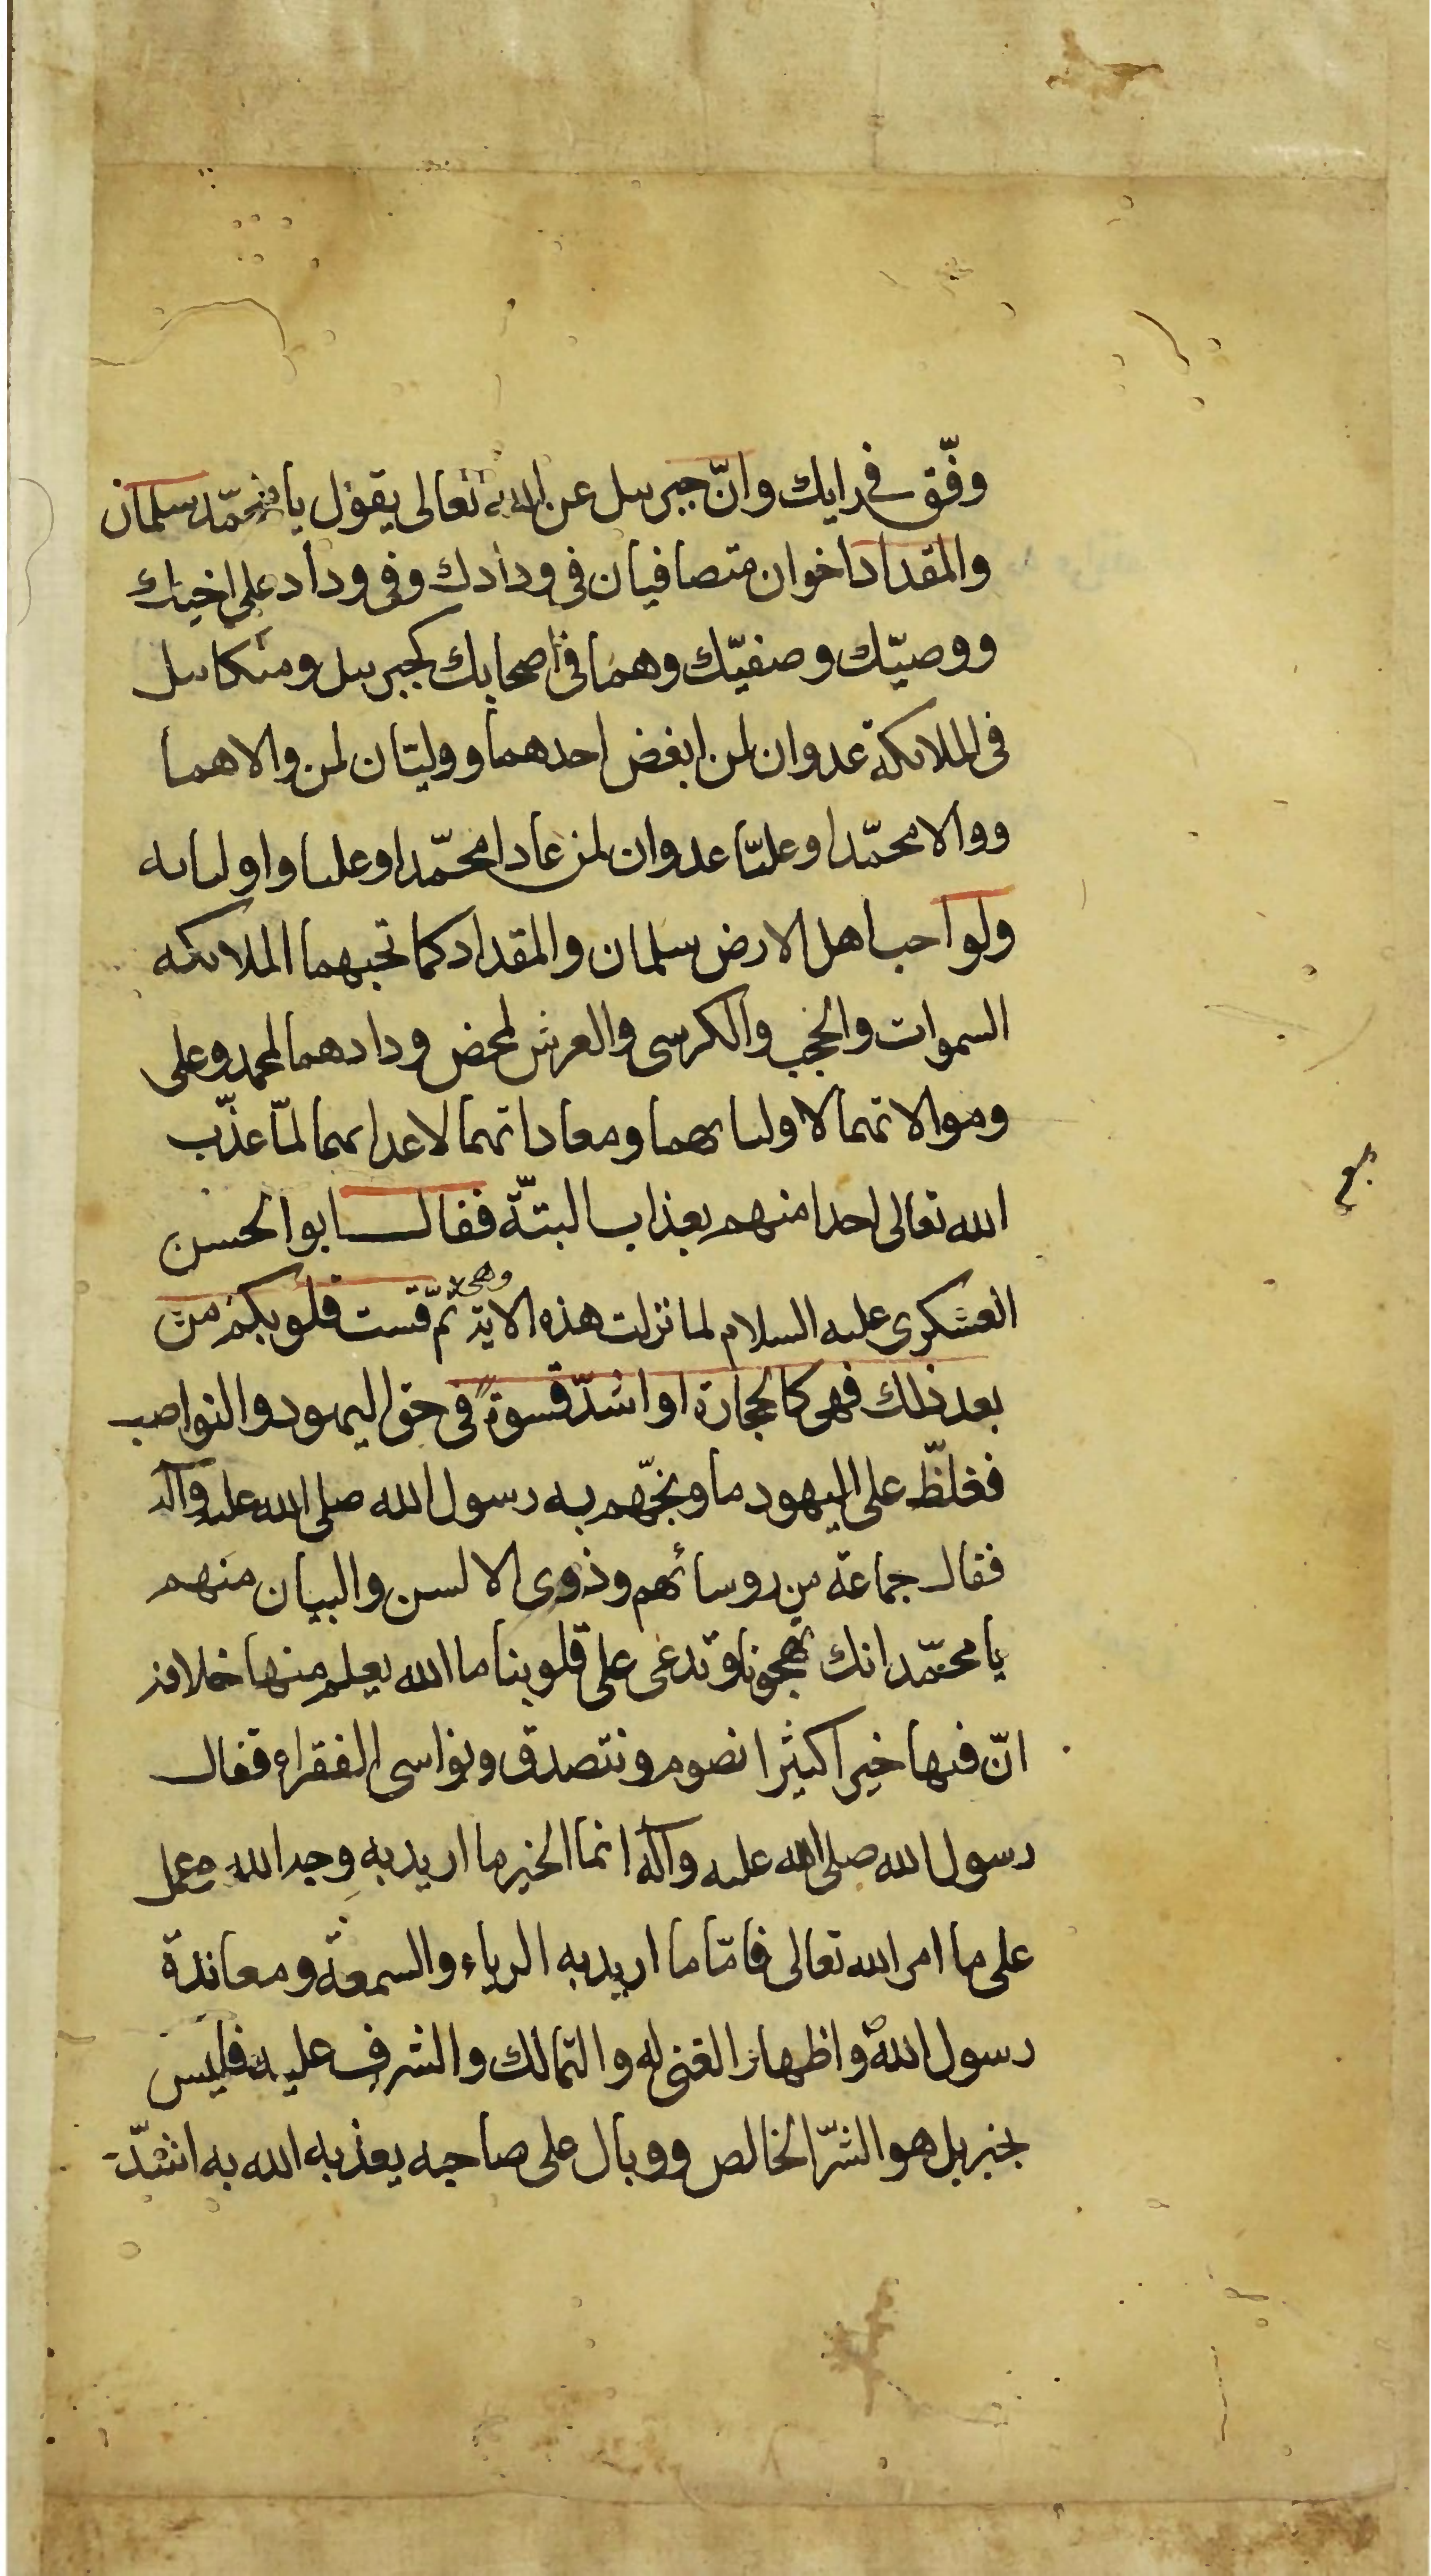 وفّق في رايك وانّ جبرىىل عن الله تعالى يقول يا محمّد سلمان
والمقداد اخوان متصافيان في ودادك وفى وداد على اخيك
ووصيّك وصفيّك وهما فى اصحابك كجبرىىل ومىكاىىل
فى الملائكة عدوان لمن ابغض احدهما ووليّان لمن والاهما
ووالا محمّدا وعليّا عدوان لمن عادا محمّدا وعليا واولىائه
ولو احب اهل الارض سلمان والمقداد كما تحبهما الملائكه
السموات والحجب والكرسى والعرش لمحض ودادهما لمحمد وعلى
وموالاتهما لاولىائهما ومعاداتهما لاعدائهما لمّا عذّب
الله تعالى احدا منهم بعذاب البتّة فقال ابو الحسن
العسكرى عليه السلام لما نزلت هذه الاية وهى ثمّ قست قلوبكم من
بعد ذلك فهى كالحجارة او اشدّ قسوة فى حق اليهود والنواصب
فغلظّ على اليهود ما وبخّهم به رسول الله صلى الله عليه وآله
فقال جماعة من روسائهم وذوى الالسن والبيان منهم
يا محمّد انك تهجونا وتدعى على قلوبنا ما الله يعلم منها خلافه
انّ فيها خيرا كثيرا نصوم ونتصدق ونواسى الفقراء فقال
رسول الله صلى الله عليه وآله انما الخير ما اريد به وجه الله وعمل
على ما امر الله تعالى فامّا ما اريد به الرياء والسمعة ومعاندة
رسول اللهؐ واظهار الغنى له والتمالك والشرف عليه فليس
بخير بل هو الشرّ الخالص ووبال على صاحبه يعذبه الله به اشدّ